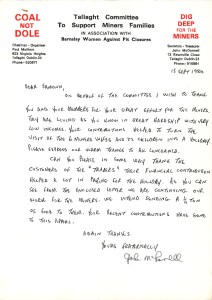 COAL
NOT
DOLE
Tallaght Committee
To Support Miners Families
IN ASSOCIATION WITH
Barnsley Women Against Pit Closures
DIG
DEEP
FOR THE
MINERS
Chairman - Organiser
Tallaght Dublin 24
Secretary - Treasurer
John McDonnell
Tallaght Dublin 24
15 SEPT 1986
DEAR
ON BEHALF OF THE COMMITTEE I WISH TO THANK
YOU AND YOUR MEMBERS FOR YOUR GREAT EFFORT FOR THE MINERS.
THEY ARE LIVING AS YOU KNOW IN GREAT HARDSHIP WITH VERY
LOW INCOMES. YOUR CONTRIBUTIONS HELPED TO TURN THE
VISIT OF THE WIVES AND CHILDREN INTO A HOLIDAY
PLEASE EXPRESS OUR WARM THANKS TO ALL CONCERNED.
CAN YOU PLEASE IN SOME WAY THANK THE
CUSTOMERS OF THE "TRADERS" THEIR FINANCIAL CONTRIBUTION
HELPED A LOT IN PAYING FOR THE HOLIDAY. AS YOU CAN
SEE FROM THE ENCLOSED LETTER WE ARE CONTINUING OUR
WORK FOR THE MINERS. WE INTEND SENDING A 1/2 TON
OF FOOD TO THEM. YOUR RECENT CONTRIBUTIONS HAVE GONE
TO THIS APPEAL.
AGAIN THANKS
YOURS FRATERNALLY
John McDonnell